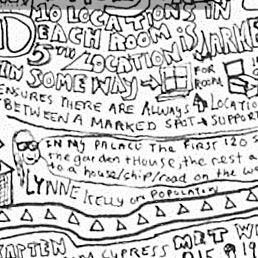 10 LOCATIONS IN
EACH ROOM is
5TH LOCATION MARKE
IN SOME WAY → FOR ROOM
ENSURES THERE ARE ALWAYS 4 LOCATIO
BETWEEN A MARKED SPOT → SUPPORT
IN MY PALACE THE FIRST 120
the garden + House, the rest a
to a house/chip/road on the w
LYNNE KELLY on POPULATION
CYPRESS MET W